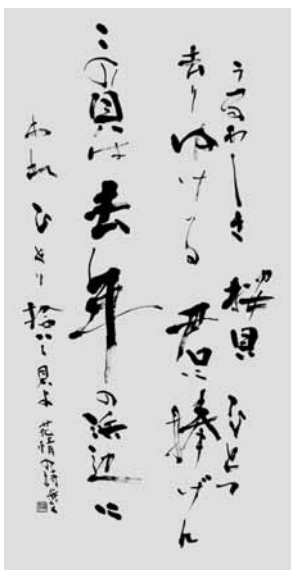 うるわしき 桜貝 ひとつ
去りゆける 君に捧げん
この貝は去年の浜辺に
われ ひとり 拾いし貝よ